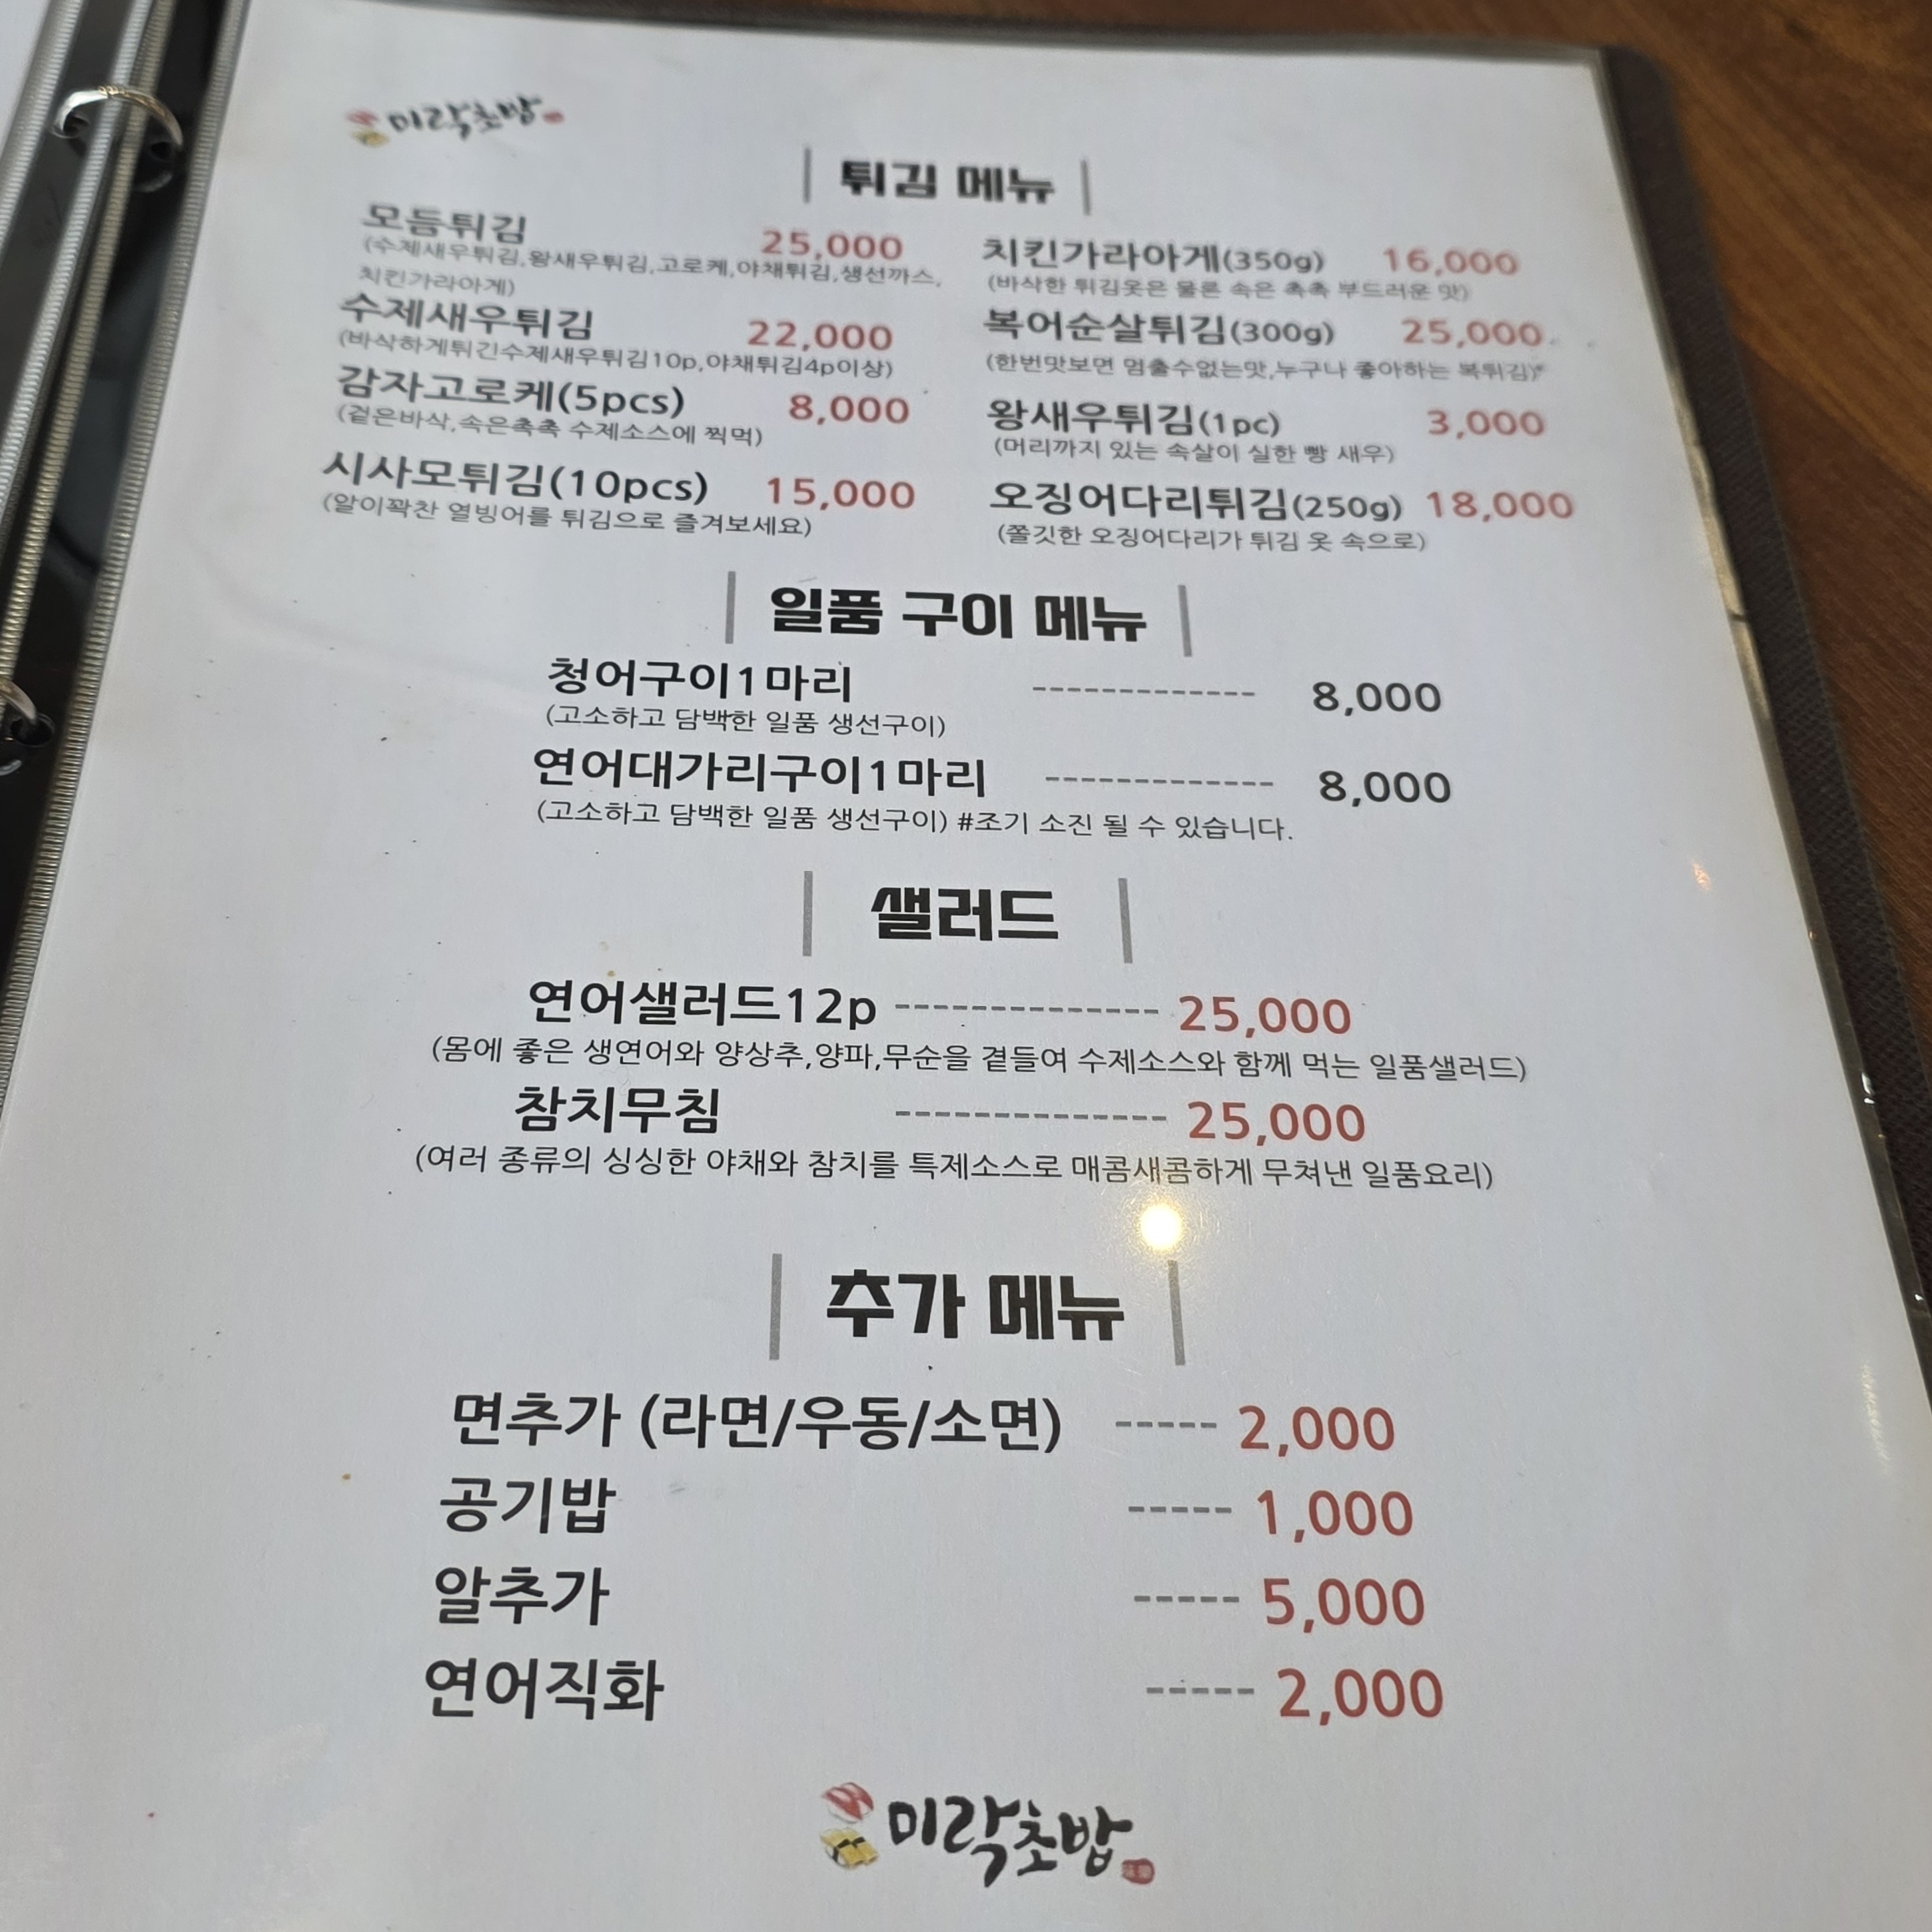 미락초밥
튀김 메뉴
모듬튀김 25,000
(수제새우튀김,왕새우튀김,고로케,야채튀김,생선까스,
치킨가라아게)
수제새우튀김 22,000
(바삭하게튀긴수제새우튀김10p,야채튀김4p이상)
감자고로케(5pcs) 8,000
(겉은바삭,속은촉촉 수제소스에 찍먹)
시사모튀김(10pcs) 15,000
(알이꽉찬 열빙어를 튀김으로 즐겨보세요)
치킨가라아게(350g) 16,000
(바삭한 튀김옷은 물론 속은 촉촉 부드러운 맛)
복어순살튀김(300g) 25,000
(한번맛보면 멈출수없는맛,누구나 좋아하는 복튀김)
왕새우튀김(1pc) 3,000
(머리까지 있는 속살이 실한 빵 새우)
오징어다리튀김(250g) 18,000
(쫄깃한 오징어다리가 튀김 옷 속으로)
일품 구이 메뉴
청어구이1마리 ------------- 8,000
(고소하고 담백한 일품 생선구이)
연어대가리구이1마리 ------------- 8,000
(고소하고 담백한 일품 생선구이) #조기 소진 될 수 있습니다.
샐러드
연어샐러드12p -------------- 25,000
(몸에 좋은 생연어와 양상추,양파,무순을 곁들여 수제소스와 함께 먹는 일품샐러드)
참치무침 -------------- 25,000
(여러 종류의 싱싱한 야채와 참치를 특제소스로 매콤새콤하게 무쳐낸 일품요리)
추가 메뉴
면추가 (라면/우동/소면) ----- 2,000
공기밥 ----- 1,000
알추가 ----- 5,000
연어직화 ----- 2,000
미락초밥